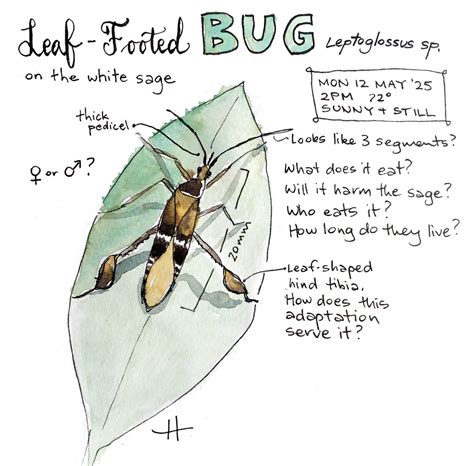 Leaf-Footed BUG Leptoglossus sp.
on the white sage
MON 12 MAY '25
2PM 72°
SUNNY + STILL
thick
pedicel
♀ or ♂?
Looks like 3 segments?
What does it eat?
Will it harm the sage?
Who eats it?
How long do they live?
20mm
Leaf-shaped
hind tibia.
How does this
adaptation
serve it?
H